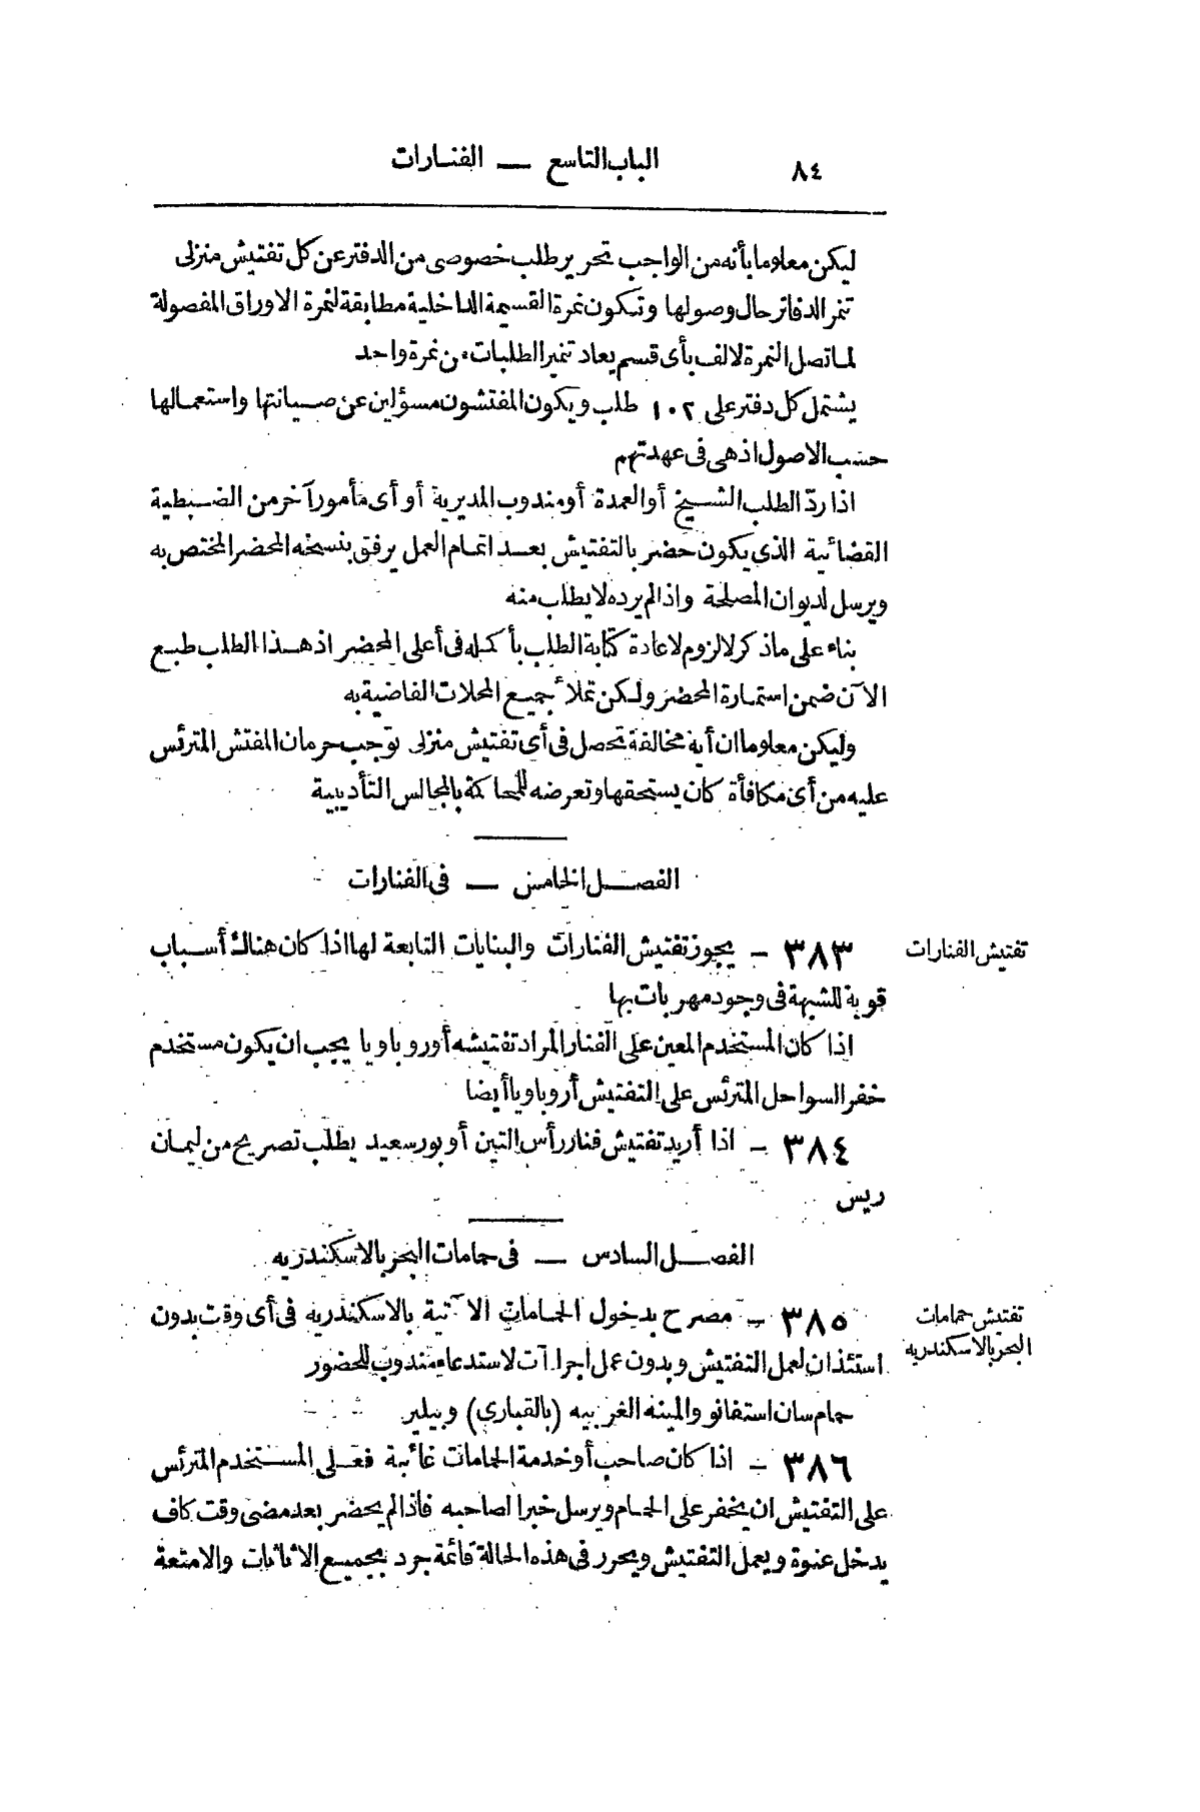 ٨٤
الباب التاسع — الفنارات
ليكن معلوما بأنه من الواجب تحرير طلب خصوصى من الدفتر عن كل تفتيش منزلى
تنمر الدفاتر حال وصولها وتكون نمرة القسيمة الداخلية مطابقة لنمرة الاوراق المفصولة
لما تصل النمرة لالف بأى قسم يعاد تنمير الطلبات من نمرة واحد
يشتمل كل دفتر على ١٠٢ طلب ويكون المفتشون مسؤلين عن صيانتها واستعمالها
حسب الاصول اذ هى فى عهدتهم
اذا ردّ الطلب الشيخ أو العمدة أو مندوب المديرية أو أى مأمور آخر من الضبطية
القضائية الذى يكون حضر بالتفتيش بعد اتمام العمل يرفق بنسخه المحضر المختص به
ويرسل لديوان المصلحة واذا لم يرده لا يطلب منه
بناء على ماذكر لا لزوم لاعادة كتابة الطلب بأكمله فى أعلى المحضر اذ هذا الطلب طبع
الآن ضمن استمارة المحضر ولكن تملأ جميع المحلات الفاضية به
وليكن معلوما ان أية مخالفة تحصل فى أى تفتيش منزلى توجب حرمان المفتش المترئس
عليه من أى مكافأة كان يستحقها وتعرضه للمحاكمة بالمجالس التأديبية
الفصل الخامس — فى الفنارات
تفتيش الفنارات
٣٨٣ — يجوز تفتيش الفنارات والبنايات التابعة لها اذا كان هناك أسباب
قوية للشبهة فى وجود مهربات بها
اذا كان المستخدم المعين على الفنار المراد تفتيشه أوروباويا يجب ان يكون مستخدم
خفر السواحل المترئس على التفتيش أروباويا أيضا
٣٨٤ — اذا أريد تفتيش فنار رأس التين أو بورسعيد يطلب تصريح من ليمان
ريس
الفصل السادس — فى حمامات البحر بالاسكندريه
تفتيش حمامات
البحر بالاسكندريه
٣٨٥ — مصرح بدخول الحمامات الآتية بالاسكندريه فى أى وقت بدون
استئذان لعمل التفتيش وبدون عمل اجراآت لاستدعاء مندوب للحضور
حمام سان استفانو والمينه الغربيه (بالقبارى) وبيلير
٣٨٦ — اذا كان صاحب أو خدمة الحمامات غائبة فعلى المستخدم المترئس
على التفتيش ان يخفر على الحمام ويرسل خبرا لصاحبه فاذا لم يحضر بعد مضى وقت كاف
يدخل عنوة ويعمل التفتيش ويحرر فى هذه الحالة قائمة جرد بجميع الاثاثات والامتعة